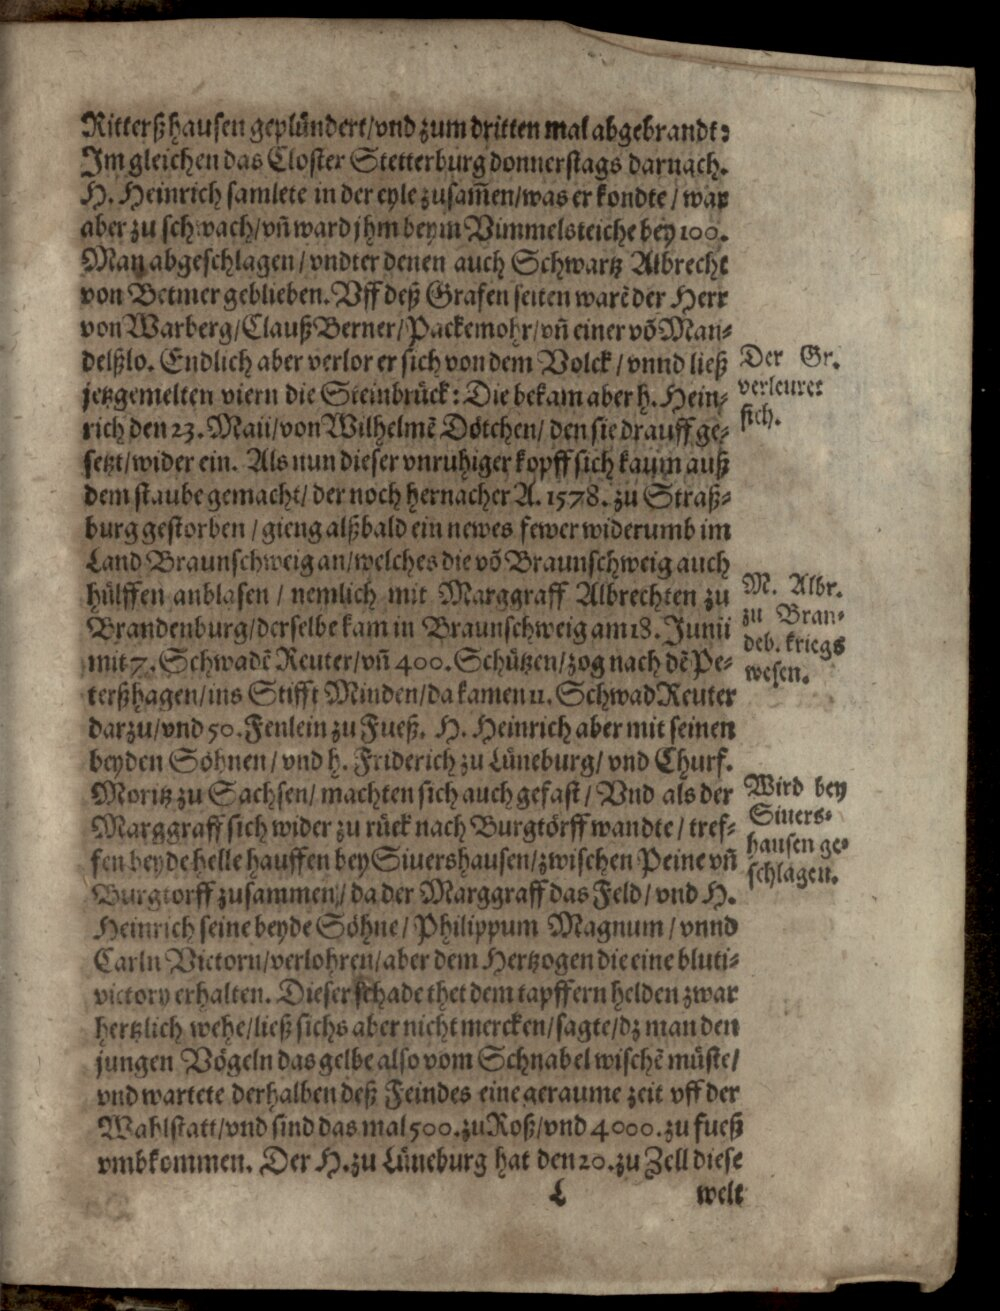 Ritterßhausen geplündert/vnd zum dritten mal abgebrandt:
Im gleichen das Closter Stetterburg donnerstags darnach.
H. Heinrich samlete in der eyle zusam̃en/was er kondte / war
aber zu schwach/vñ ward jhm beym Vimmelsteiche bey 100.
Man abgeschlagen / vndter denen auch Schwartz Albrecht
von Betmer geblieben. Vff deß Grafen seiten warẽ der Herr
von Warberg/Clauß Berner/Packemohr/vñ einer võ Man⸗
delßlo. Endlich aber verlor er sich von dem Volck / vnnd ließ
jetzgemelten viern die Steinbrück: Die bekam aber h. Hein⸗
rich den 23. Maii/von Wilhelmẽ Dötchen/ den sie drauff ge⸗
setzt/wider ein. Als nun dieser vnruhiger kopff sich kaum auß
dem staube gemacht/ der noch hernacher A. 1578. zu Straß⸗
burg gestorben / gieng alßbald ein newes fewer widerumb im
Land Braunschweig an/welches die võ Braunschweig auch
hülffen anblasen / nemlich mit Marggraff Albrechten zu
Brandenburg/derselbe kam in Braunschweig am 18. Junii
mit 7. Schwadẽ Reuter/vñ 400. Schützen/zog nach dẽ Pe⸗
terßhagen/ins Stifft Minden/da kamen 11. Schwad Reuter
darzu/vnd 50. Fenlein zu Fueß. H. Heinrich aber mit seinen
beyden Söhnen / vnd h. Friderich zu Lüneburg/ vnd Churf.
Moritz zu Sachsen/ machten sich auch gefast / Vnd als der
Marggraff sich wider zu rück nach Burgtörff wandte / tref⸗
fen beyde helle hauffen bey Siuershausen/zwischen Peine vñ
Burgtorff zusammen/ da der Marggraff das Feld/ vnd H.
Heinrich seine beyde Söhne/ Philippum Magnum / vnnd
Carln Victorn/verlohren/aber dem Hertzogen die eine bluti⸗
victory erhalten. Dieser schade thet dem tapffern helden zwar
hertzlich wehe/ließ sichs aber nicht mercken/sagte/dz man den
jungen Vögeln das gelbe also vom Schnabel wischẽ müste/
vnd wartete derhalben deß Feindes eine geraume zeit vff der
Wahlstatt/vnd sind das mal 500. zu Roß/vnd 4000. zu fueß
vmbkommen. Der H. zu Lüneburg hat den 20. zu Zell diese
L welt
Der Gr.
verleuret
sich.
M. Albr.
zu Bran⸗
deb. kriegs
wesen.
Wird bey
Siuers⸗
hausen ge⸗
schlagen.